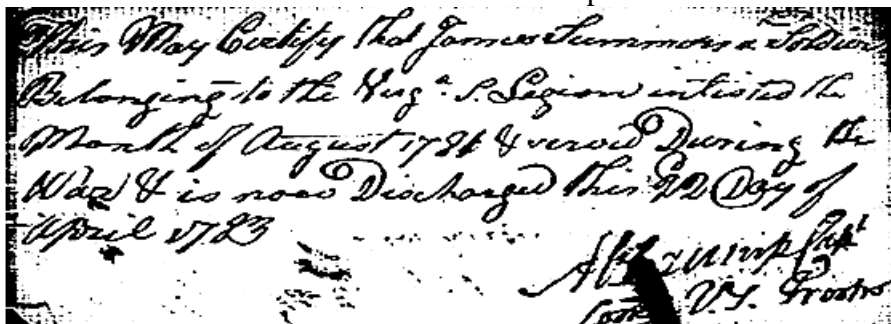 This May Certify that James Summors a Soldier
Belonging to the Virgᵃ. S. Legion entisted the
Month of August 1781 & served During the
War & is now Discharged this 22 Day of
April 1783
Capᵗ
V. S.